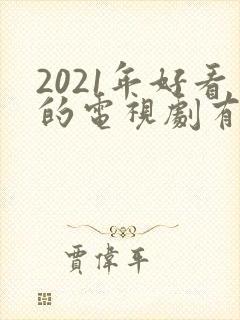 2021年好看
的電視劇有
賈偉平